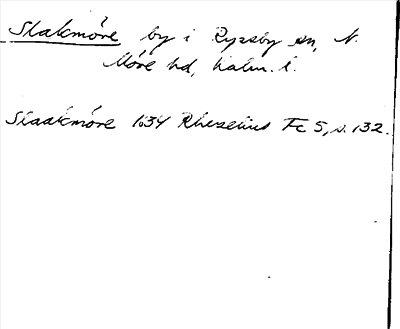 Slakmöre by i Ryssby sn, N.
Möre hd, Kalm. l.
Slaakmöre 1634 Rhezelius Fc 5, s. 132.